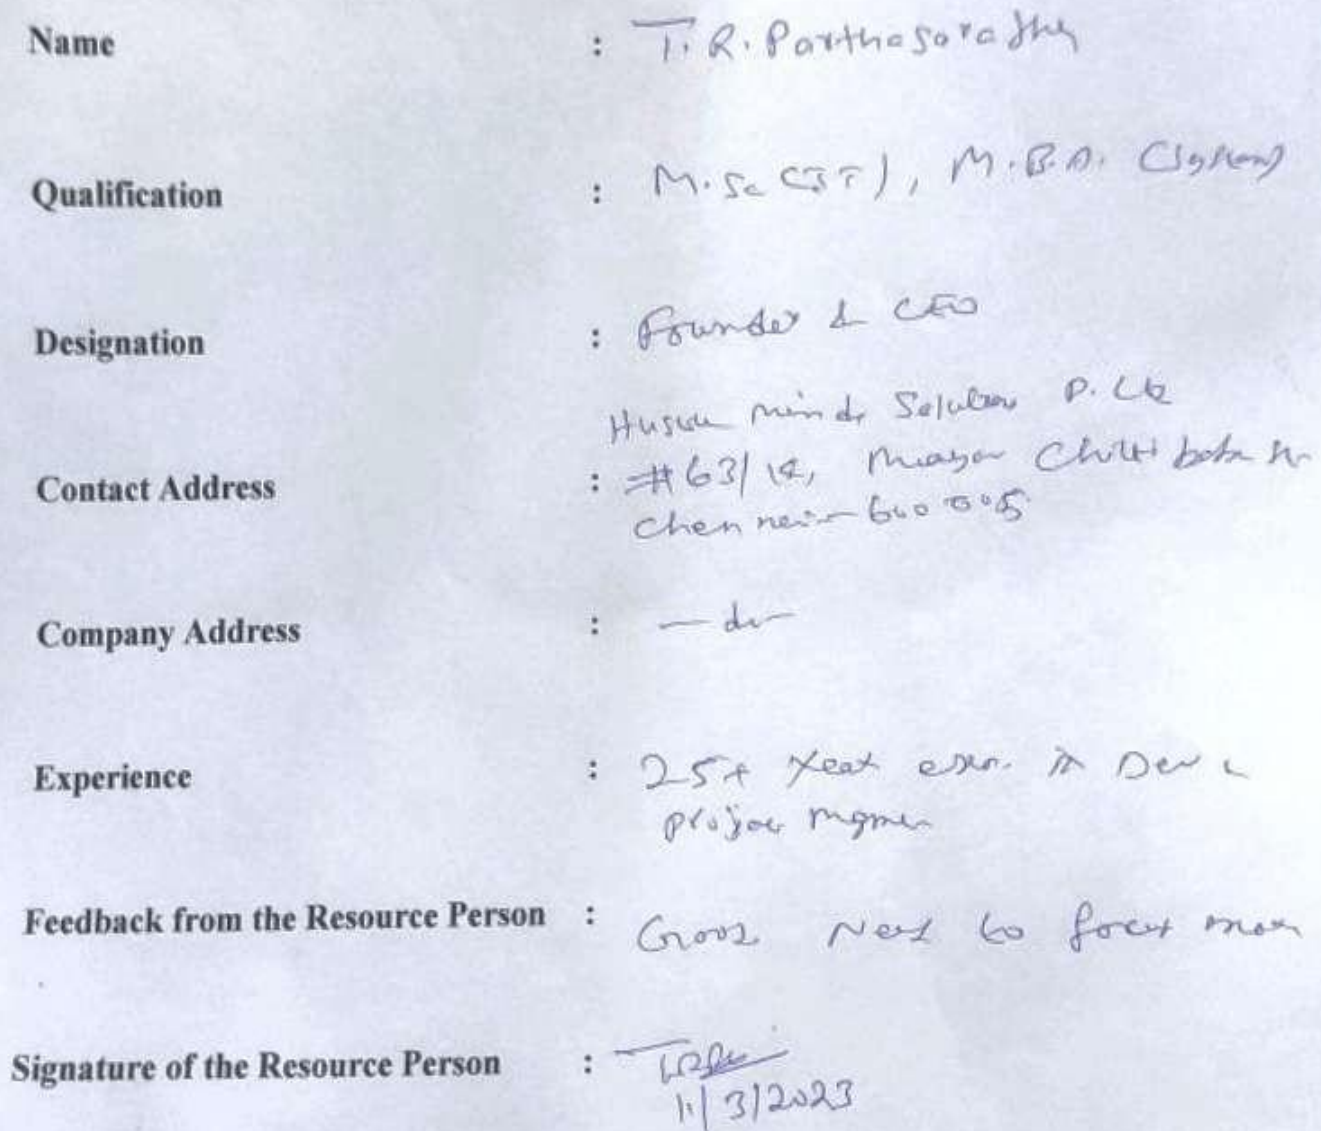 Name : T. R. Parthasarathy
Qualification : M.Sc (IT), M.B.A. (System)
Designation : Founder & CEO
Minds Solutions P. Ltd
Contact Address : #63/12, Chitti babu
Chennai - 600 005
Company Address : — do —
Experience : 25+ Year in Dev &
project mgmen
Feedback from the Resource Person : Good Need to focus more
Signature of the Resource Person :
11/3/2023